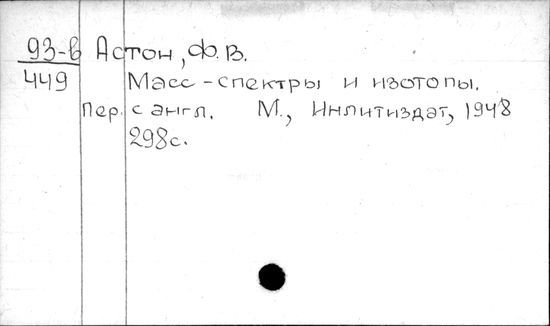 93-в Астон, Ф.В.
449 Масс-спектры и изотопы.
Пер. с англ. М., Инлитиздат, 1948
298с.